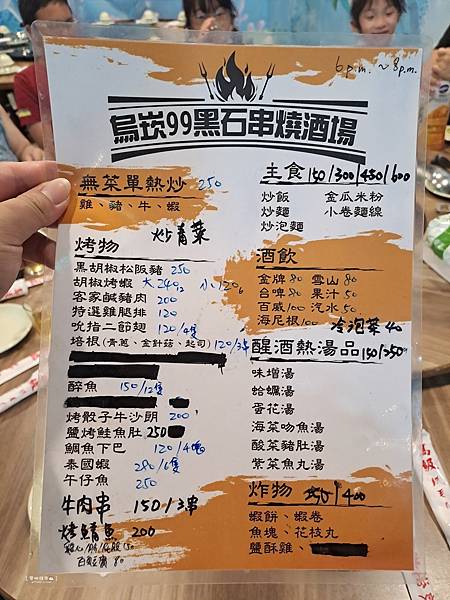 6 p.m. ~ 8 p.m.
烏崁99黑石串燒酒場
無菜單熱炒 250
雞、豬、牛、蝦
炒青菜
烤物
黑胡椒松阪豬 250
胡椒烤蝦 大240 小120
客家鹹豬肉 200
特選雞腿排 120
吮指二節翅 120/4隻
培根(青蔥、金針菇、起司) 120/3串
醉魚 150/12隻
烤骰子牛沙朗 200
鹽烤鮭魚肚 250
鯛魚下巴 120/4塊
泰國蝦 280/6隻
午仔魚 250
牛肉串 150/3串
烤鯖魚 200
主食 150/300/450/600
炒飯 金瓜米粉
炒麵 小卷麵線
炒泡麵
酒飲
金牌 80 雪山 80
台啤 80 果汁 50
百威 100 汽水 50
海尼根 100
冷泡菜 40
醒酒熱湯品 150/250
味增湯
蛤蠣湯
蛋花湯
海菜吻魚湯
酸菜豬肚湯
紫菜魚丸湯
炸物 350/400
蝦餅、蝦卷
魚塊、花枝丸
鹽酥雞、